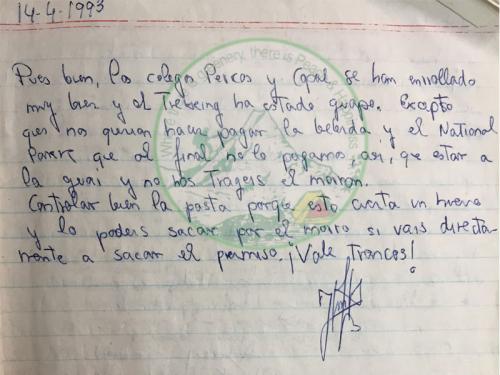 14-4-1993
Pues bien, los colegas Percos y Copal se han enrollado
muy bien y el Trekking ha estado guapo. Excepto
que nos querian hacer pagar la bebida y el National
Parcre que al final no lo pagamos, asi, que estar a
la guai y no hos trageis el marron.
Controlar bien la pasta porque esta cuesta un huevo
y lo podeis sacar por el morro si vais directa-
mente a sacar el premiso. ¡Vale troncos!
Where there is Greenery, there is Peace & Happiness